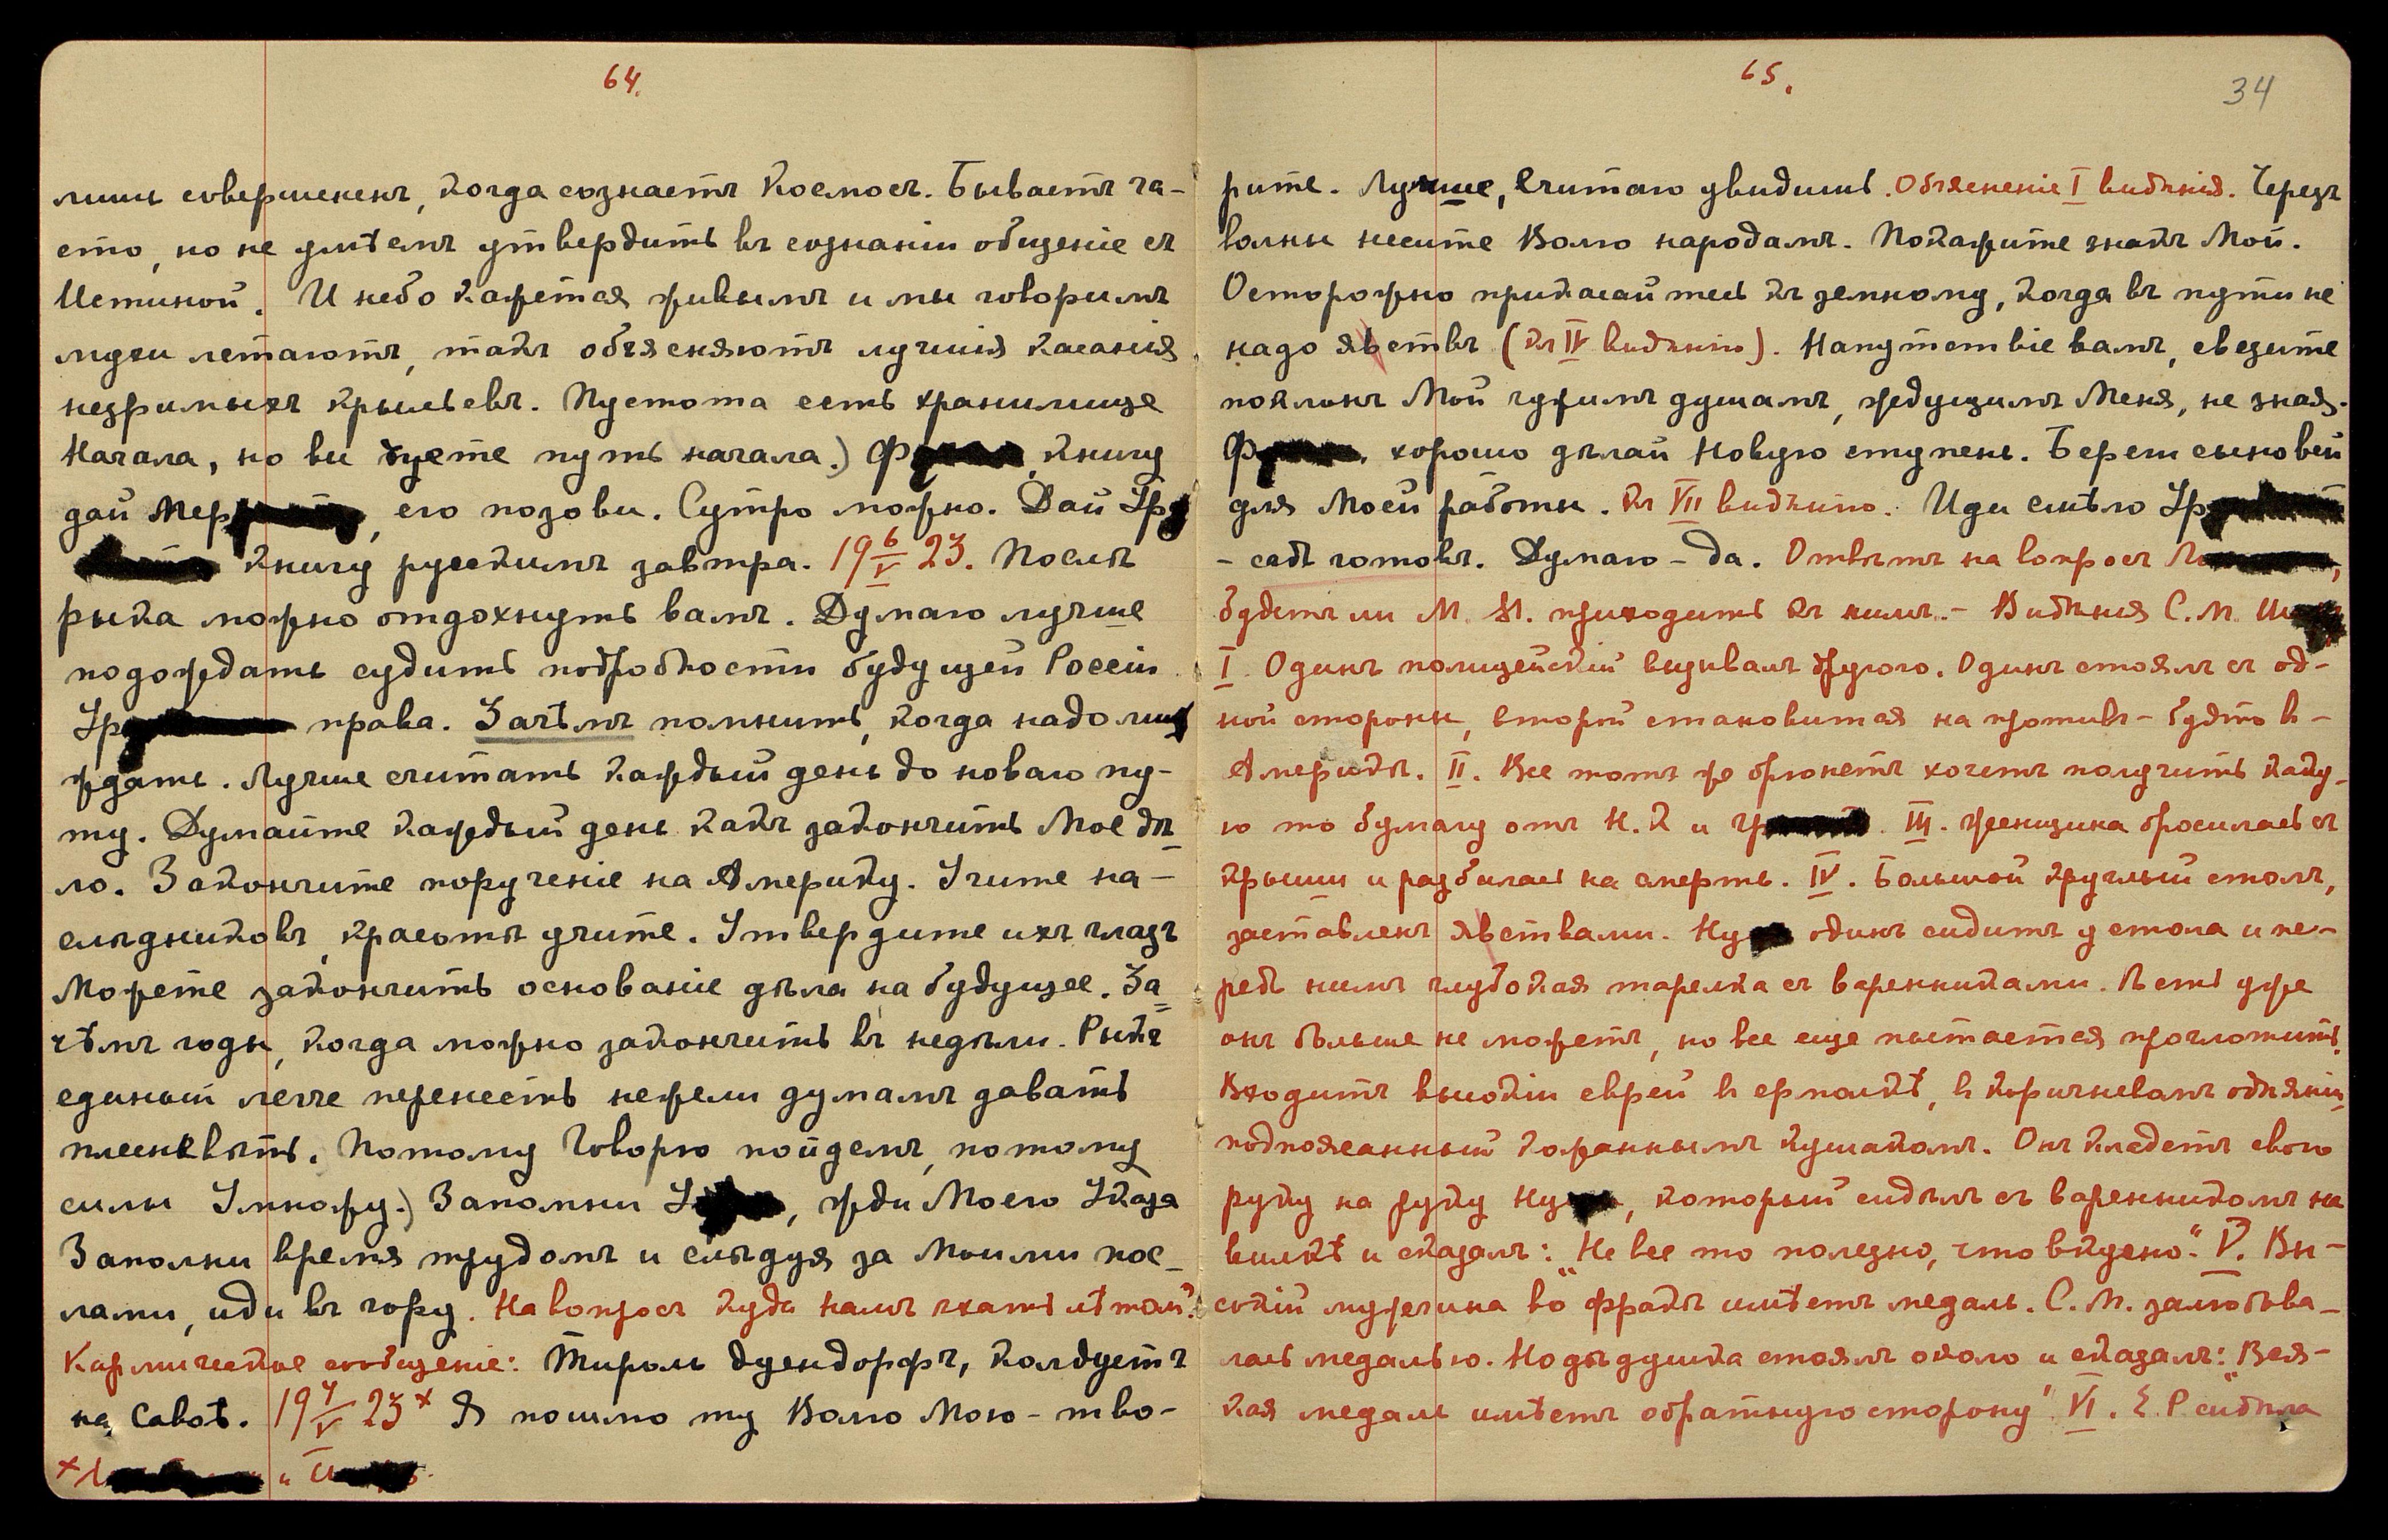 64.
лишь совершененъ, когда сознаетъ Космосъ. Бываетъ ча-
сто, но не умѣемъ утвердить въ сознаніи общеніе съ
Истиной. И небо кажется живымъ и мы говоримъ
мухи летаютъ, такъ объясняютъ лучшія касанія
незримыхъ крыльевъ. Пустота есть хранилище
Начала, но вы чуете путь начала.) Ф книгу
дай Мер, его позови. Сутро можно. Дай Ур
книгу русскимъ завтра. 19 6/V 23. Послѣ
рыка можно отдохнуть вамъ. Думаю лучше
подождать судить подробности будущей Россіи
Ур права. Зачѣмъ помнить, когда надо лишь
ждать. Лучше считать каждый день до новаго пу-
ти. Думайте каждый день какъ закончить Мое дѣ
ло. Закончите порученіе на Америку. Учите на-
слѣдниковъ, красотѣ учите. Утвердите ихъ глазъ
Можете закончить основаніе дѣла на будущее. За
чѣмъ годы, когда можно закончить въ недѣли. Рыкъ
единый легче перенесть нежели думамъ давать
плесневѣть. Потому Говорю пойдемъ, потому
силы Умножу.) Запомни У, жди Моего Указа
Заполни время трудомъ и слѣдуя за Моими пос-
лами, иди въ гору. На вопросъ куда намъ ѣхать лѣтомъ?
Кармическое сообщеніе: Тироль Дуендорфъ, колдуетъ
на Савоѣ. 19 7/V 23 х Я пошлю ту Волю Мою - тво-
х и
65.
34
рите. Лучше, Считаю увидимъ. Объясненіе I видѣнія. Черезъ
волны несите Волю народамъ. Покажите знакъ Мой.
Осторожно прикасайтесь къ земному, когда въ пути не
надо явствъ (къ IV видѣнію). Напутствіе вамъ, свезите
поклонъ Мой чужимъ душамъ, ждущимъ Меня, не зная.
Ф, хорошо дѣлай Новую ступень. Берем сыновей
для Моей работы. Къ VII видѣнію. Иди смѣло Ур
- садъ готовъ. Думаю - да. Отвѣтъ на вопросъ Л,
будетъ ли М. М. приходить къ нимъ. - Видѣнія С. М. Ш
I. Одинъ полицейскій вызвалъ другого. Одинъ стоялъ съ од-
ной стороны, второй становится на противъ - будто в -
Америкѣ. II. Все тотъ же брюнетъ хочетъ получить каку-
ю то бумагу отъ Н. К и Гр. III. Женщина бросилась съ
крыши и разбилась на смерть. IV. Большой круглый столъ,
заставленъ явствами. Ну одинъ сидитъ у стола и пе-
редъ нимъ глубокая тарелка съ варенниками. Ѣсть уже
онъ больше не можетъ, но все еще пытается проглотить.
Входитъ высокій еврей в ермолкѣ, в коричневомъ одѣяніи,
подпоясанный кожаннымъ кушакомъ. Онъ кладетъ свою
руку на руку Ну, который сидѣлъ съ варенникомъ на
вилкѣ и сказалъ: "Не все то полезно, что вкусно." V. Вы-
сокій мужчина во фракѣ имѣетъ медаль. С. М. залюбова-
лась медалью. Но дѣдушка стоялъ около и сказалъ: "Вся-
кая медаль имѣетъ обратную сторону" VI. Е. Р. сидѣла